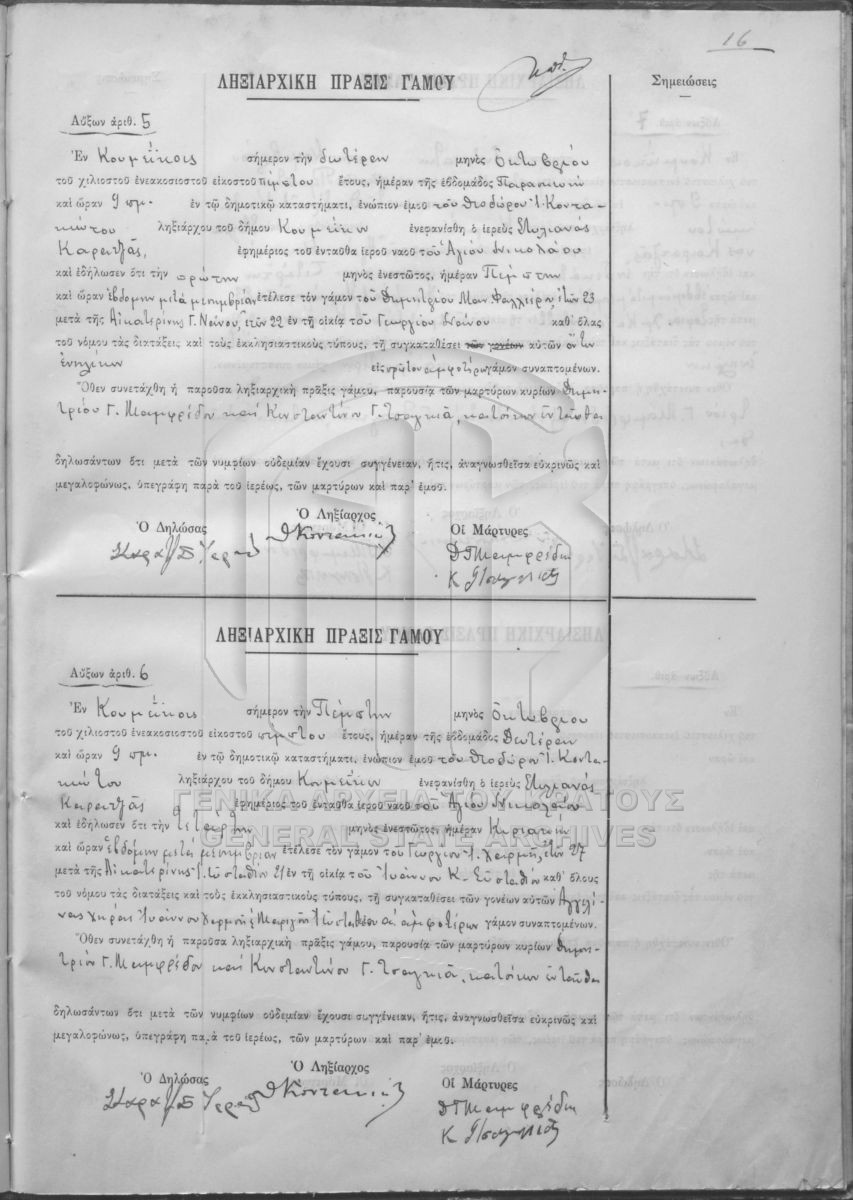 16
ΛΗΞΙΑΡΧΙΚΗ ΠΡΑΞΙΣ ΓΑΜΟΥ
Σημειώσεις
Αὔξων ἀριθ. 5
Ἐν Κουμεΐκοις σήμερον τὴν δευτέραν μηνὸς Ὀκτωβρίου
τοῦ χιλιοστοῦ ἐνεακοσιοστοῦ εἰκοστοῦ πέμπτου ἔτους, ἡμέραν τῆς ἑβδομάδος Παρασκευὴν
καὶ ὥραν 9 πμ. ἐν τῷ δημοτικῷ καταστήματι, ἐνώπιον ἐμοῦ τοῦ Θεοδώρου Ἰ. Κοντα-
κώτου ληξιάρχου τοῦ δήμου Κουμεΐκων ἐνεφανίσθη ὁ ἱερεὺς Στυλιανός
Καρατζᾶς, ἐφημέριος τοῦ ἐνταῦθα ἱεροῦ ναοῦ τοῦ Ἁγίου Νικολάου
καὶ ἐδήλωσεν ὅτι τὴν πρώτην μηνὸς ἐνεστῶτος, ἡμέραν Πέμπτην
καὶ ὥραν ἑβδόμην μετὰ μεσημβρίαν ἐτέλεσε τὸν γάμον τοῦ Δημητρίου Μαν. ἐτῶν 23
μετὰ τῆς Αἰκατερίνης Γ. Νείνου, ἐτῶν 22 ἐν τῇ οἰκίᾳ τοῦ Γεωργίου Νείνου καθ' ὅλας
τοῦ νόμου τὰς διατάξεις καὶ τοὺς ἐκκλησιαστικοὺς τύπους, τῇ συγκαταθέσει τῶν γονέων αὐτῶν ὄντων
ἐνηλίκων εἰς πρῶτον ἀμφοτέρων γάμον συναπτομένων.
Ὅθεν συνετάχθη ἡ παροῦσα ληξιαρχικὴ πρᾶξις γάμου, παρουσίᾳ τῶν μαρτύρων κυρίων Δημη-
τρίου Γ. Μαμφρέδου καὶ Κωνσταντίνου Γ. κατοίκων ἐνταῦθα
δηλωσάντων ὅτι μετὰ τῶν νυμφίων οὐδεμίαν ἔχουσι συγγένειαν, ἥτις, ἀναγνωσθεῖσα εὐκρινῶς καὶ
μεγαλοφώνως, ὑπεγράφη παρὰ τοῦ ἱερέως, τῶν μαρτύρων καὶ παρ' ἐμοῦ.
Ὁ Δηλώσας
Ὁ Ληξίαρχος
Οἱ Μάρτυρες
ΔΓΜαμφρέδης
ΛΗΞΙΑΡΧΙΚΗ ΠΡΑΞΙΣ ΓΑΜΟΥ
Αὔξων ἀριθ. 6
Ἐν Κουμεΐκοις σήμερον τὴν Πέμπτην μηνὸς Ὀκτωβρίου
τοῦ χιλιοστοῦ ἐνεακοσιοστοῦ εἰκοστοῦ πέμπτου ἔτους, ἡμέραν τῆς ἑβδομάδος Δευτέραν
καὶ ὥραν 9 πμ. ἐν τῷ δημοτικῷ καταστήματι, ἐνώπιον ἐμοῦ τοῦ Θεοδώρου Ἰ. Κοντα-
κώτου ληξιάρχου τοῦ δήμου Κουμεΐκων ἐνεφανίσθη ὁ ἱερεὺς Στυλιανός
Καρατζᾶς ἐφημέριος τοῦ ἐνταῦθα ἱεροῦ ναοῦ τοῦ Ἁγίου Νικολάου
ΓΕΝΙΚΑ ΑΡΧΕΙΑ ΤΟΥ ΚΡΑΤΟΥΣ
καὶ ἐδήλωσεν ὅτι τὴν τετάρτην μηνὸς ἐνεστῶτος, ἡμέραν Κυριακὴν
GENERAL STATE ARCHIVES
καὶ ὥραν ἑβδόμην μετὰ μεσημβρίαν ἐτέλεσε τὸν γάμον τοῦ Γεωργίου Ἰ. Χαρμῆ, ἐτῶν 27
μετὰ τῆς Αἰκατερίνης Ἰ. Εὐσταθίου 21 ἐν τῇ οἰκίᾳ τοῦ Ἰωάννου Κ. Εὐσταθίου καθ' ὅλους
τοῦ νόμου τὰς διατάξεις καὶ τοὺς ἐκκλησιαστικοὺς τύπους, τῇ συγκαταθέσει τῶν γονέων αὐτῶν Ἀγγελί-
νας χήρας Ἰωάννου Χαρμῆ ἀμφοτέρων γάμον συναπτομένων.
Ὅθεν συνετάχθη ἡ παροῦσα ληξιαρχικὴ πρᾶξις γάμου, παρουσίᾳ τῶν μαρτύρων κυρίων Δημη-
τρίου Γ. Μαμφρέδου καὶ Κωνσταντίνου Γ. κατοίκων ἐνταῦθα
δηλωσάντων ὅτι μετὰ τῶν νυμφίων οὐδεμίαν ἔχουσι συγγένειαν, ἥτις, ἀναγνωσθεῖσα εὐκρινῶς καὶ
μεγαλοφώνως, ὑπεγράφη παρὰ τοῦ ἱερέως, τῶν μαρτύρων καὶ παρ' ἐμοῦ.
Ὁ Δηλώσας
Ὁ Ληξίαρχος
Οἱ Μάρτυρες
ΔΓΜαμφρέδης